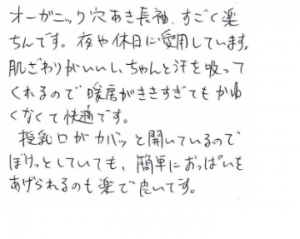 オーガニック穴あき長袖、すごく楽
ちんです。夜や休日に愛用しています。
肌ざわりがいいし、ちゃんと汗を吸って
くれるので暖房がききすぎてもかゆ
くなくて快適です。
授乳口がガバッと開いているので
ぼけっとしていても、簡単におっぱいを
あげられるのも楽で良いです。